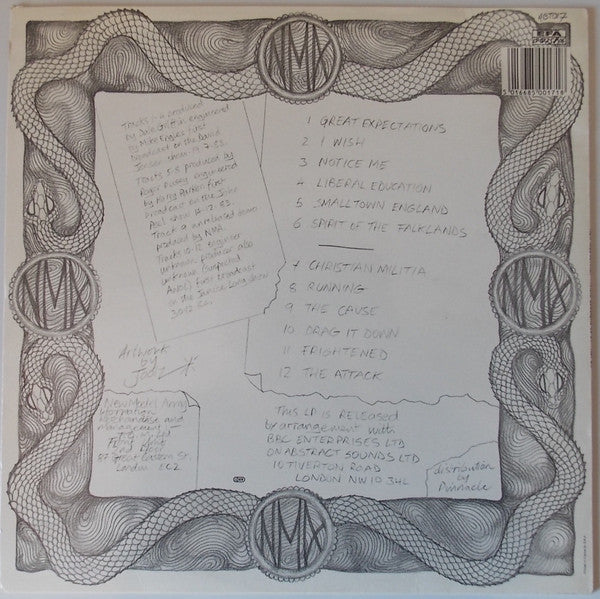 NMA
ABT017
EFA
5 016685 001718
Tracks 1-4 produced
by Dave Griffin engineered
by Mike Engles first
broadcast on the David
Jensen show 19.7.83.
Tracks 5-8 produced by
Roger Pusey engineered
by Harry Parker first
broadcast on the John
Peel show 13.12.83.
Track 9 unreleased demo
produced by NMA.
Tracks 10-12 engineer
unknown producer also
unknown (suspected
first broadcast
on the Janice Long show
1 GREAT EXPECTATIONS
2 I WISH
3 NOTICE ME
4 LIBERAL EDUCATION
5 SMALLTOWN ENGLAND
6 SPIRIT OF THE FALKLANDS
7 CHRISTIAN MILITIA
8 RUNNING
9 THE CAUSE
10 DRAG IT DOWN
11 FRIGHTENED
12 THE ATTACK
NMA
NMA
Artwork
by
Joolz
New Model Army
information
merchandise and
management -
2nd Floor
87 Great Eastern St.
London EC2
THIS LP IS RELEASED
by arrangement with
BBC ENTERPRISES LTD
ON ABSTRACT SOUNDS LTD
10 TIVERTON ROAD
LONDON NW10 3HL
distribution
by
Pinnacle
NMA